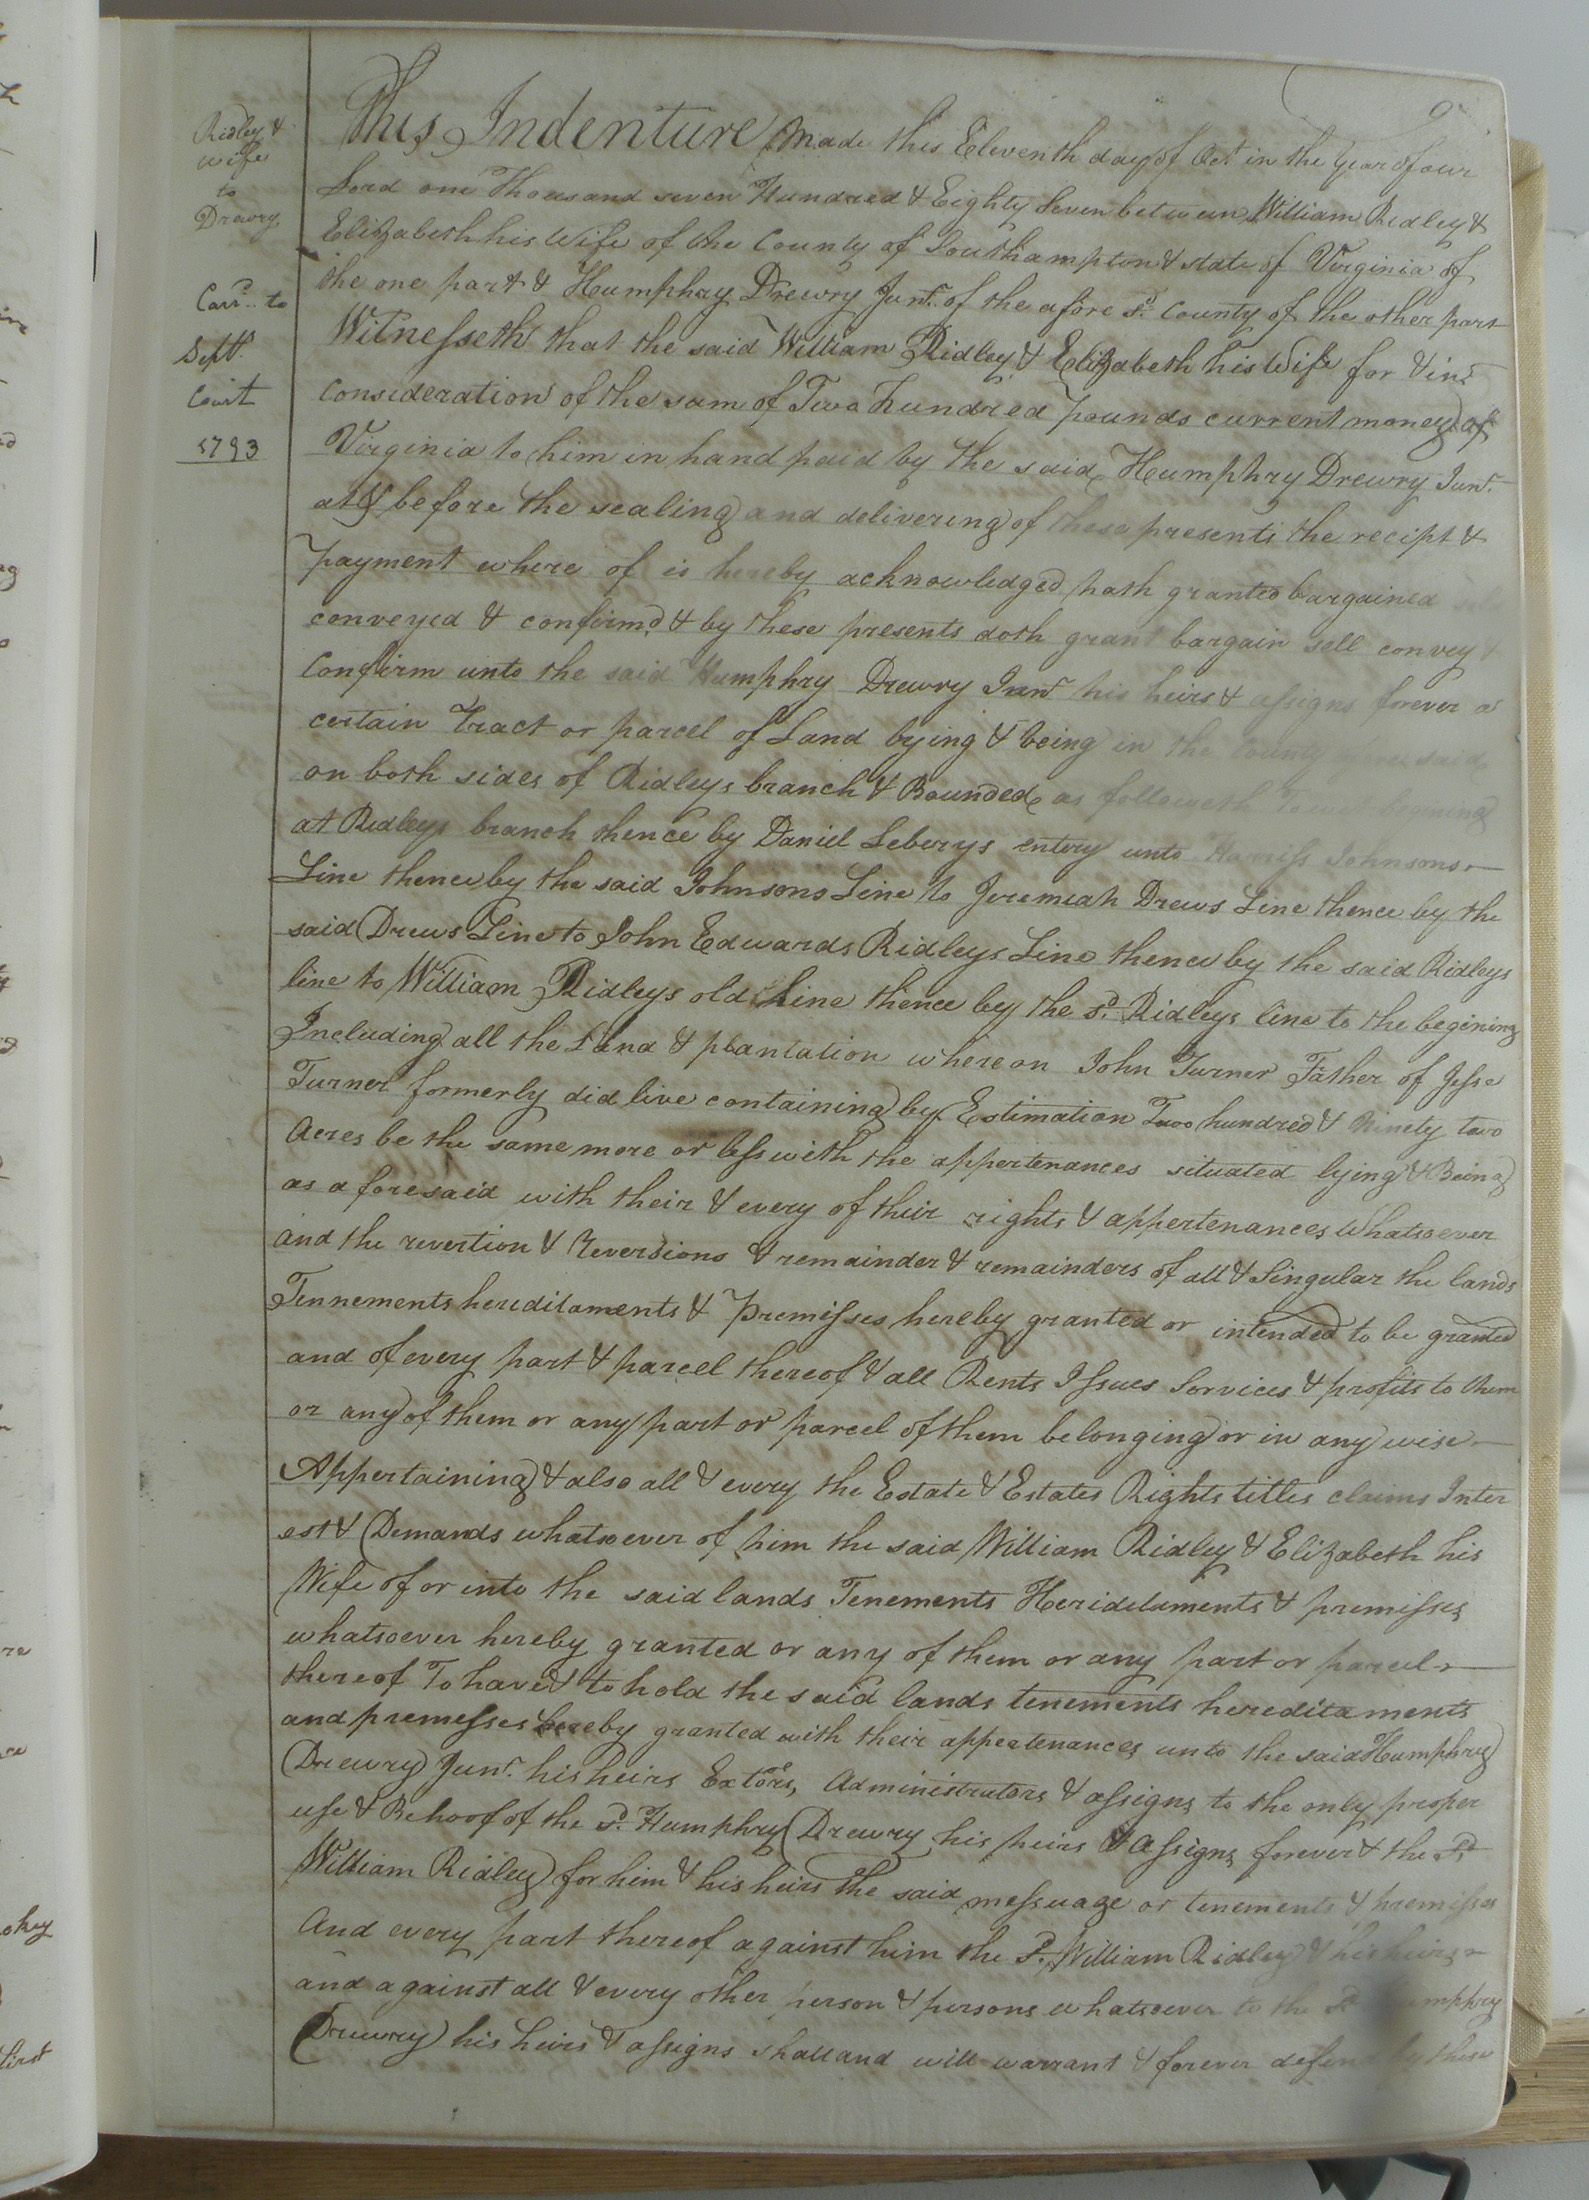 Ridley &
wife
to
Drewry
Carrd. to
Sept.
Court
1793
9
This Indenture Made this Eleventh day of Oct in the Year of our
Lord one Thousand seven Hundred & Eighty Seven between William Ridley &
Elizabeth his Wife of the County of Southampton & state of Virginia of
the one part & Humphry Drewry Junr. of the afore sd. County of the other part
Witnesseth that the said William Ridley & Elizabeth his Wife for & in
consideration of the sum of Two hundred pounds current money of
Virginia to him in hand paid by the said Humphry Drewry Junr.
at & before the sealing and delivering of these presents the recipt &
payment where of is hereby acknowledged hath granted bargained
conveyed & confirmd. & by these presents doth grant bargain sell convey &
Confirm unto the said Humphry Drewry Junr his heirs & assigns forever a
certain Tract or parcel of Land lying & being in the County said
on both sides of Ridleys branch & Bounded as followeth
at Ridleys branch thence by Daniel Leberys entery unto Harriss Johnsons
Line thence by the said Johnsons Line to Jeremiah Drews Line thence by the
said Drews Line to John Edwards Ridleys Line thence by the said Ridleys
line to William Ridleys old Line thence by the sd. Ridleys line to the begining
Including all the Land & plantation where on John Turner Father of Jesse
Turner formerly did live containing by Estimation Two hundred & Ninety two
Acres be the same more or less with the appertenances situated lying & Being
as a foresaid with their & every of their rights & appertenances Whatsoever
and the revertion & Reversions & remainder & remainders of all & Singular the lands
Tennements hereditaments & Premisses hereby granted or intended to be granted
and of every part & parcel thereof & all Rents Issues Services & profits to them
or any of them or any part or parcel of them belonging or in any wise
Appertaining & also all & every the Estate & Estates Rights titles claims Inter
est & Demands whatsoever of him the said William Ridley & Elizabeth his
Wife of or into the said lands Tenements Heriditaments & premisses
whatsoever hereby granted or any of them or any part or parcel
thereof To have & to hold the said lands tenements hereditaments
and premesses hereby granted with their appertenances unto the said Humphry
Drewry Junr. his heirs Exetors, Administrators & assigns to the only proper
use & Behoof of the sd. Humphry Drewry his heirs & assigns forever & the sd.
William Ridley for him & his heirs the said messuage or tenements & premisses
And every part thereof against him the sd. William Ridley & his heirs
and against all & every other person & persons whatsoever to the sd Humphry
Drewry his heirs & assigns shall and will warrant & forever defend by these